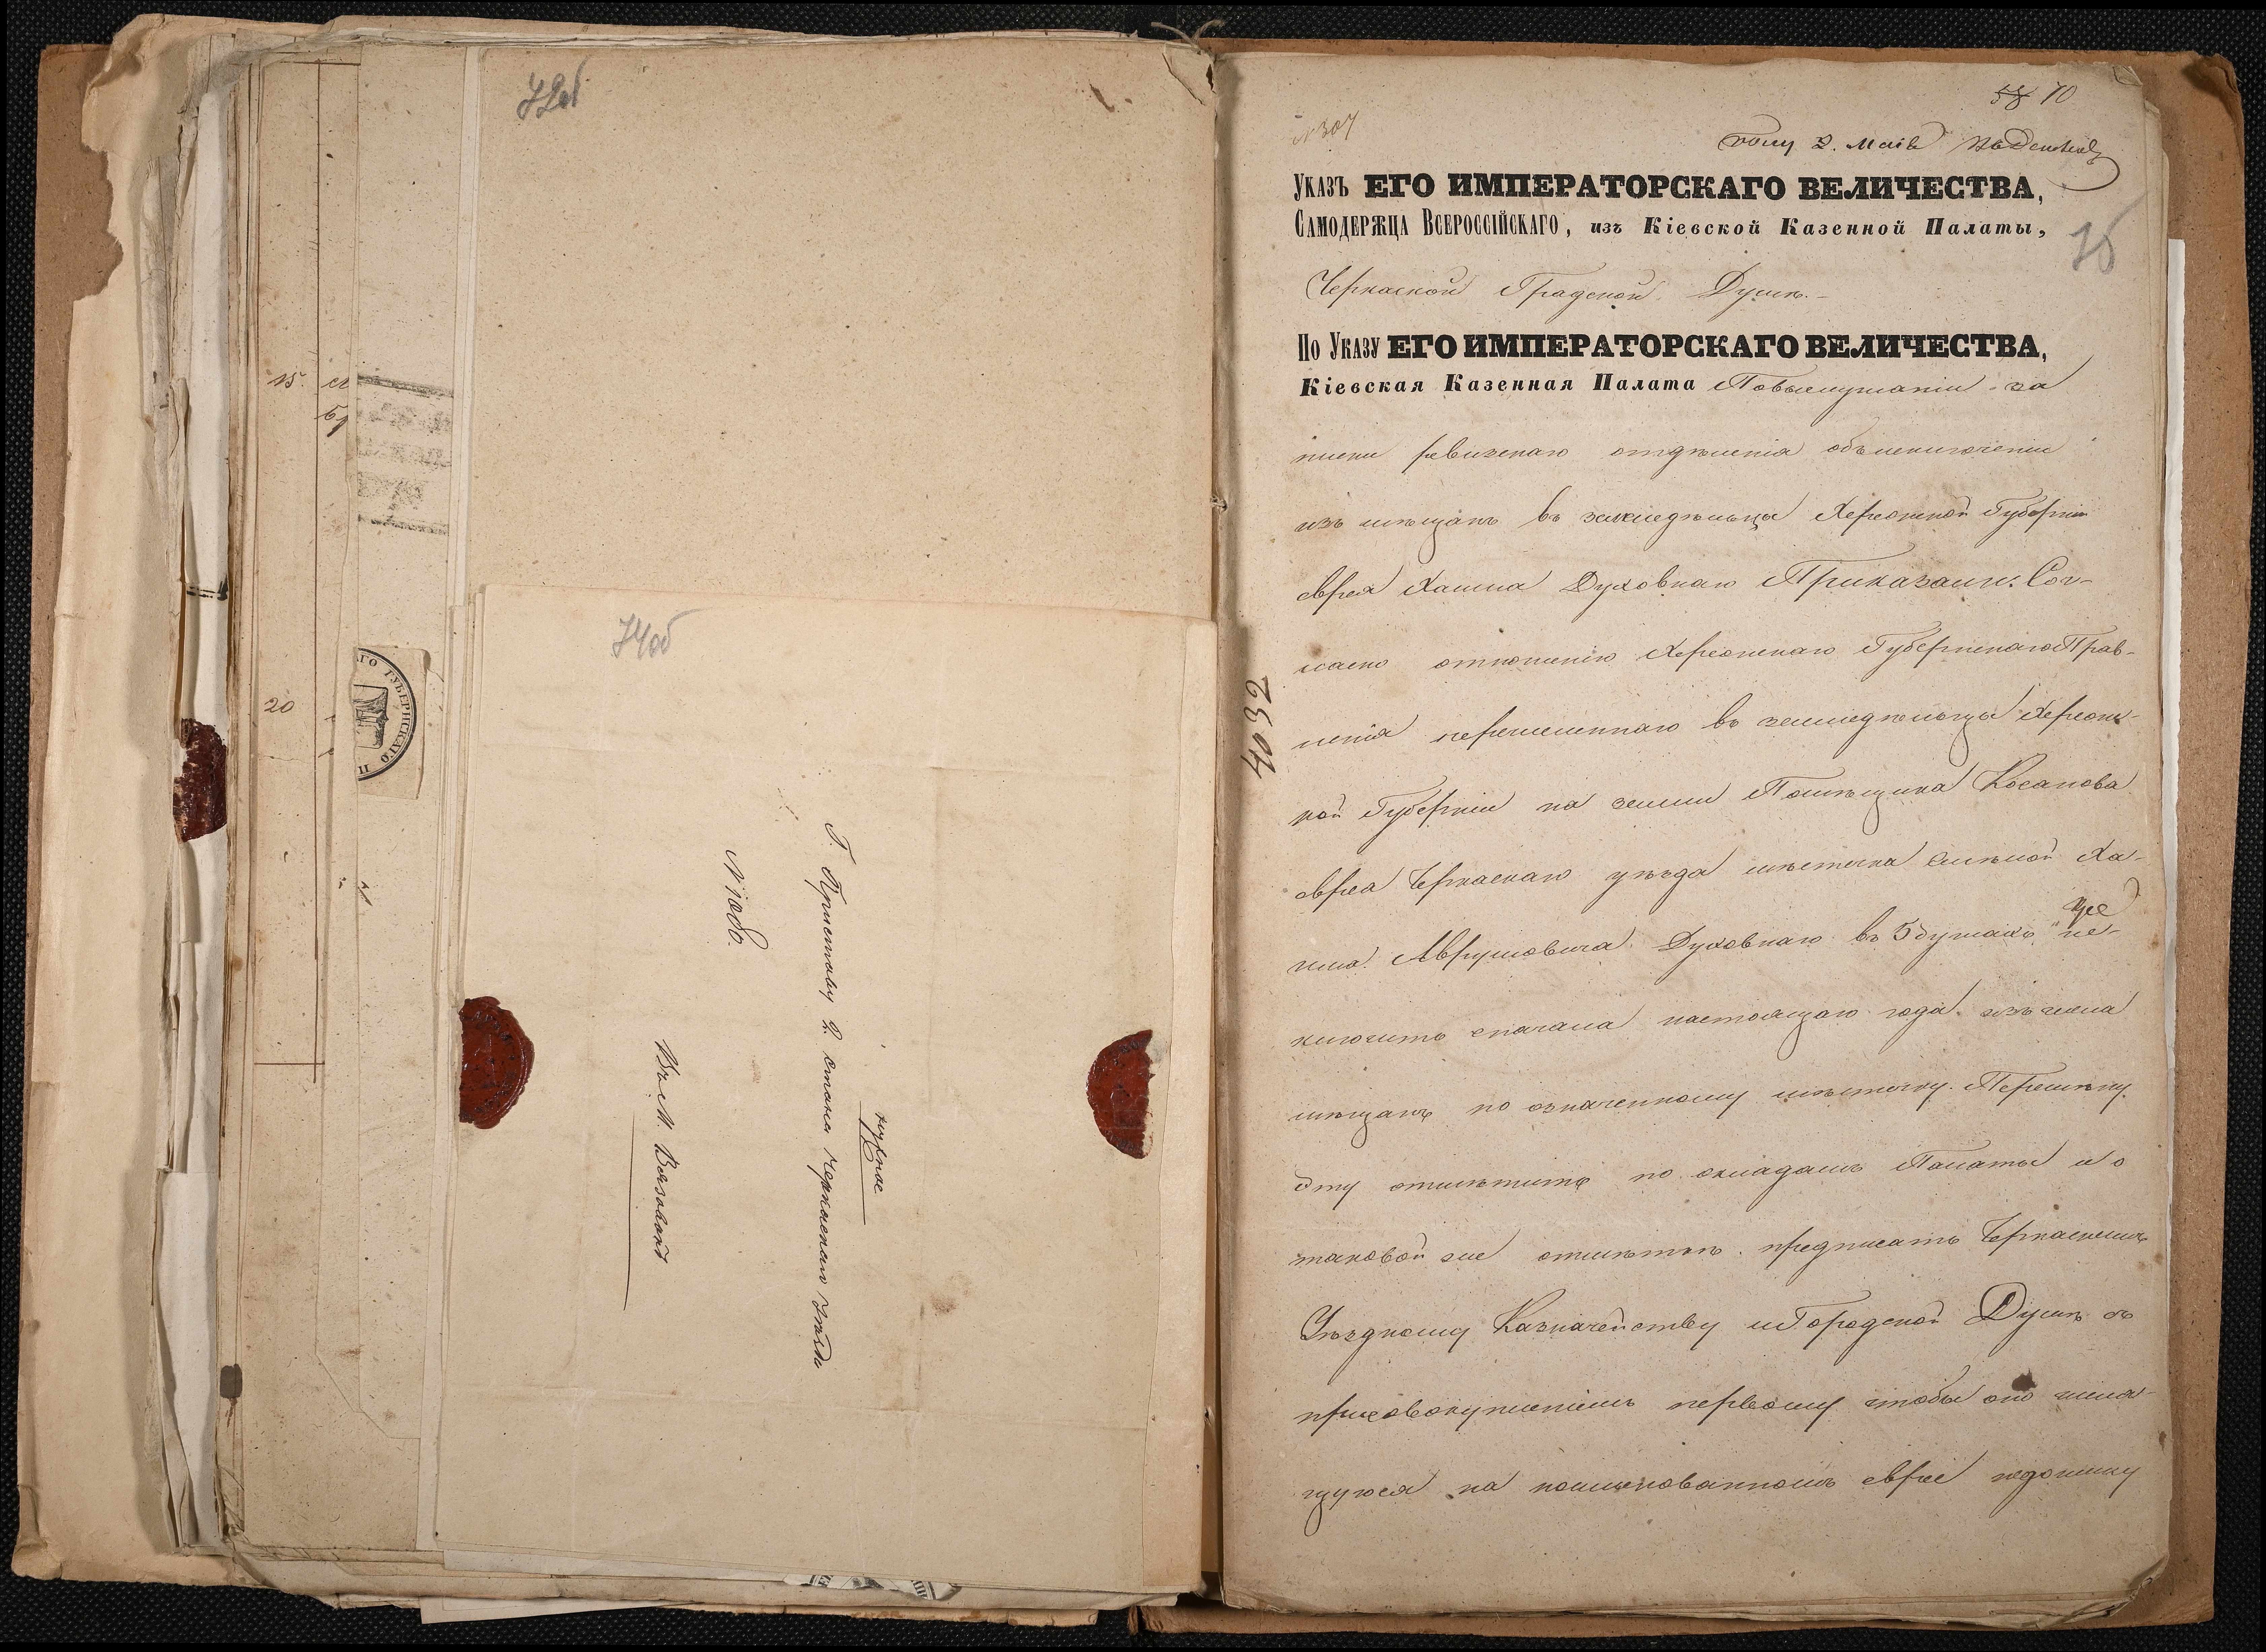 72об
15.
20
АГО ГУБЕРНСКАГО П
74об
нужное
Г. Приставу 2. стана Черкаскаго уѣзда
№ 1080.
Въ М. Вязовкѣ
58 70
№ 307
2. Маія
УКАЗЪ ЕГО ИМПЕРАТОРСКАГО ВЕЛИЧЕСТВА,
САМОДЕРЖЦА ВСЕРОССІЙСКАГО, изъ Кіевской Казенной Палаты,
75
Черкаской Градской Думѣ.
ПО УКАЗУ ЕГО ИМПЕРАТОРСКАГО ВЕЛИЧЕСТВА,
Кіевская Казенная Палата Повыслушаніи за
писки ревизскаго отдѣленія объисключеніи
изъ мѣщанъ въ земледѣльцы Херсонской Губерніи
еврея Хаима Духовнаго Приказали: Сог-
ласно отношенію Херсонскаго Губернскаго Прав-
ленія перечисленнаго въ земледѣльцы Херсонс-
кой Губерніи на земли Помѣщика Косакова
еврея Черкаскаго уѣзда мѣстечка Смѣлой Ха-
има Аврумовича Духовнаго въ 5 душахъ ис-
ключить сначала настоящаго года изъ числа
мѣщанъ по означенному мѣстечку. Перемѣну
эту отмѣтить по окладамъ Палаты и о
таковой же отмѣткѣ предписать Черкаскимъ
Уѣздному Казначейству и Городской Думѣ съ
присовокупленіемъ первому чтобы оно числя-
щуюся на поименованномъ еврее недоимку